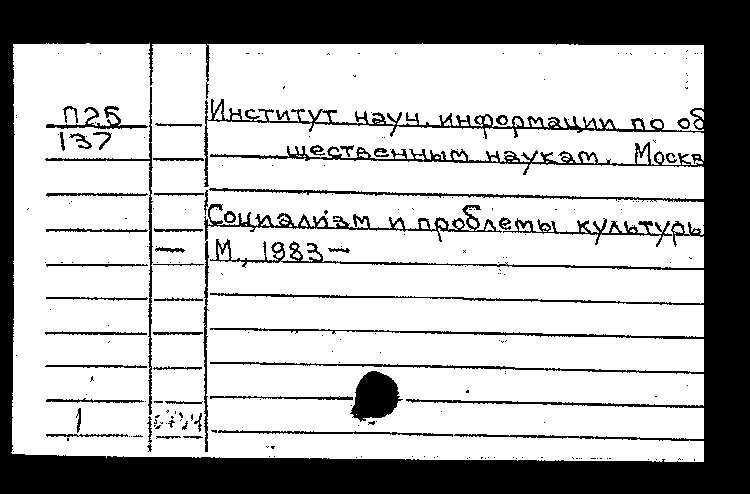 П25
137
Институт науч. информации по об
щественным наукам. Москв
Социализм и проблемы культуры
— М., 1983—
1